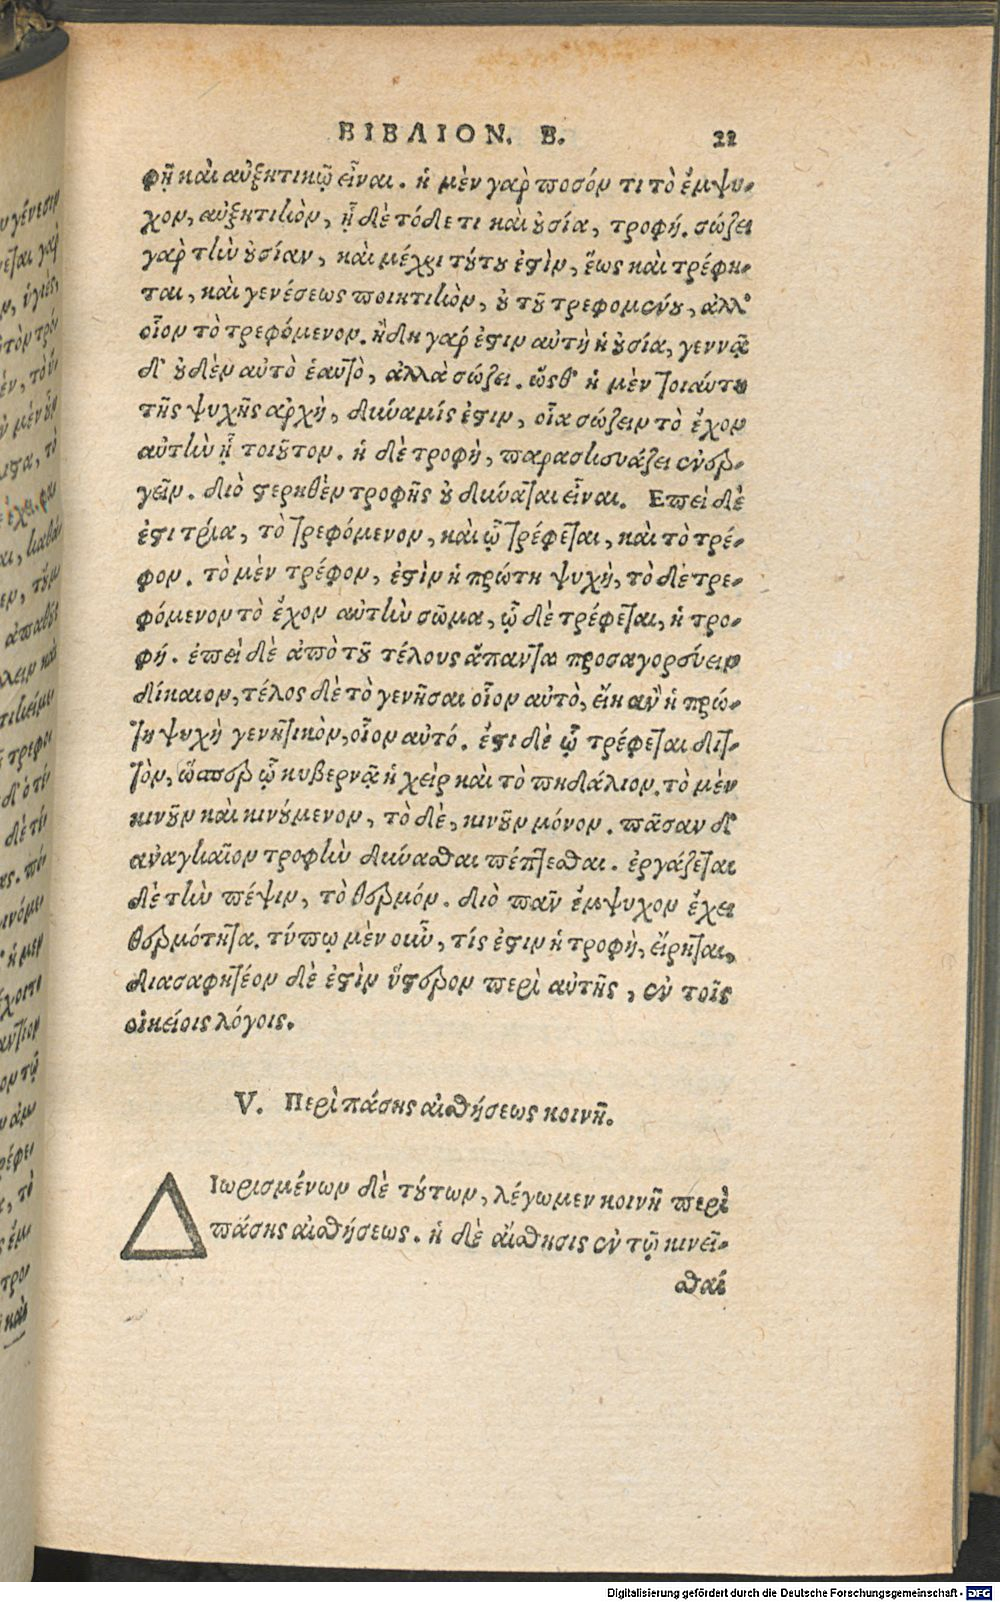 ΒΙΒΛΙΟΝ. Β. 22
φῇ καὶ αὐξητικῷ εἶναι. ἡ μὲν γὰρ ποσόν τι τὸ ἔμψυ-
χον, αὐξητικὸν, ᾗ δὲ τόδε τι καὶ οὐσία, τροφή. σώζει
γὰρ τὴν οὐσίαν, καὶ μέχρι τούτου ἐστὶν, ἕως καὶ τρέφη-
ται, καὶ γενέσεως ποιητικὸν, οὐ τοῦ τρεφομένου, ἀλλ'
οἷον τὸ τρεφόμενον. ἤδη γάρ ἐστιν αὐτὴ ἡ οὐσία, γεννᾷ
δ' οὐδὲν αὐτὸ ἑαυτὸ, ἀλλὰ σώζει. ὥσθ' ἡ μὲν τοιαύτη
τῆς ψυχῆς ἀρχὴ, δύναμίς ἐστιν, οἵα σώζειν τὸ ἔχον
αὐτὴν ᾗ τοιοῦτον. ἡ δὲ τροφὴ, παρασκευάζει ἐνερ-
γεῖν. διὸ στερηθὲν τροφῆς οὐ δύναται εἶναι. Επεὶ δὲ
ἐστι τρία, τὸ τρεφόμενον, καὶ ᾧ τρέφεται, καὶ τὸ τρέ-
φον. τὸ μὲν τρέφον, ἐστὶν ἡ πρώτη ψυχὴ, τὸ δὲ τρε-
φόμενον τὸ ἔχον αὐτὴν σῶμα, ᾧ δὲ τρέφεται, ἡ τρο-
φή. ἐπεὶ δὲ ἀπὸ τοῦ τέλους ἅπαντα προσαγορεύειν
δίκαιον, τέλος δὲ τὸ γενῆσαι οἷον αὐτὸ, εἴη ἂν ἡ πρώ-
τη ψυχὴ γενητικὸν, οἷον αὐτό. ἔστι δὲ ᾧ τρέφεται διτ-
τὸν, ὥσπερ ᾧ κυβερνᾷ ἡ χεὶρ καὶ τὸ πηδάλιον. τὸ μὲν
κινοῦν καὶ κινούμενον, τὸ δὲ, κινοῦν μόνον. πᾶσαν δ'
ἀναγκαῖον τροφὴν δύνασθαι πέπτεσθαι. ἐργάζεται
δὲ τὴν πέψιν, τὸ θερμόν. διὸ πᾶν ἔμψυχον ἔχει
θερμότητα. τύπῳ μὲν οὖν, τίς ἐστιν ἡ τροφὴ, εἴρηται,
διασαφητέον δὲ ἐστὶν ὕστερον περὶ αὐτῆς, ἐν τοῖς
οἰκείοις λόγοις.
V. Περὶ πάσης αἰσθήσεως κοινῇ.
Διωρισμένων δὲ τούτων, λέγωμεν κοινῇ περὶ
πάσης αἰσθήσεως. ἡ δὲ αἴσθησις ἐν τῷ κινεῖ-
σθαί
Digitalisierung gefördert durch die Deutsche Forschungsgemeinschaft - DFG